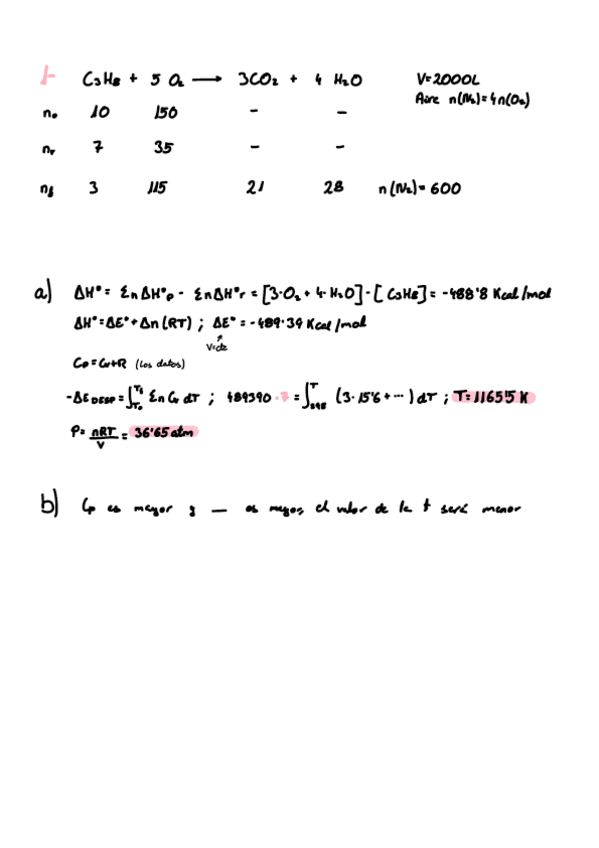 1-
C3H8 + 5 O2 → 3CO2 + 4 H2O V=2000L
Aire n(N2)=4n(O2)
n₀ 10 150 - -
nr 7 35 - -
nf 3 115 21 28 n(N2)= 600
a) ΔH°= ΣnΔH°p - ΣnΔH°r = [3·O2 + 4·H2O]-[C3H8]= -488'8 Kcal/mol
ΔH°=ΔE°+Δn(RT) ; ΔE°= -489'39 Kcal/mol
V=cte
Cp=Cv+R (los datos)
-ΔE DESP = ∫T₀Tf Σn Cv dT ; 489390·7 = ∫298T (3·15'6+···) dT ; T=1165'5 K
P= nRT/V = 36'65 atm
b) Cp es mayor y — es mayor, el valor de la t será menor